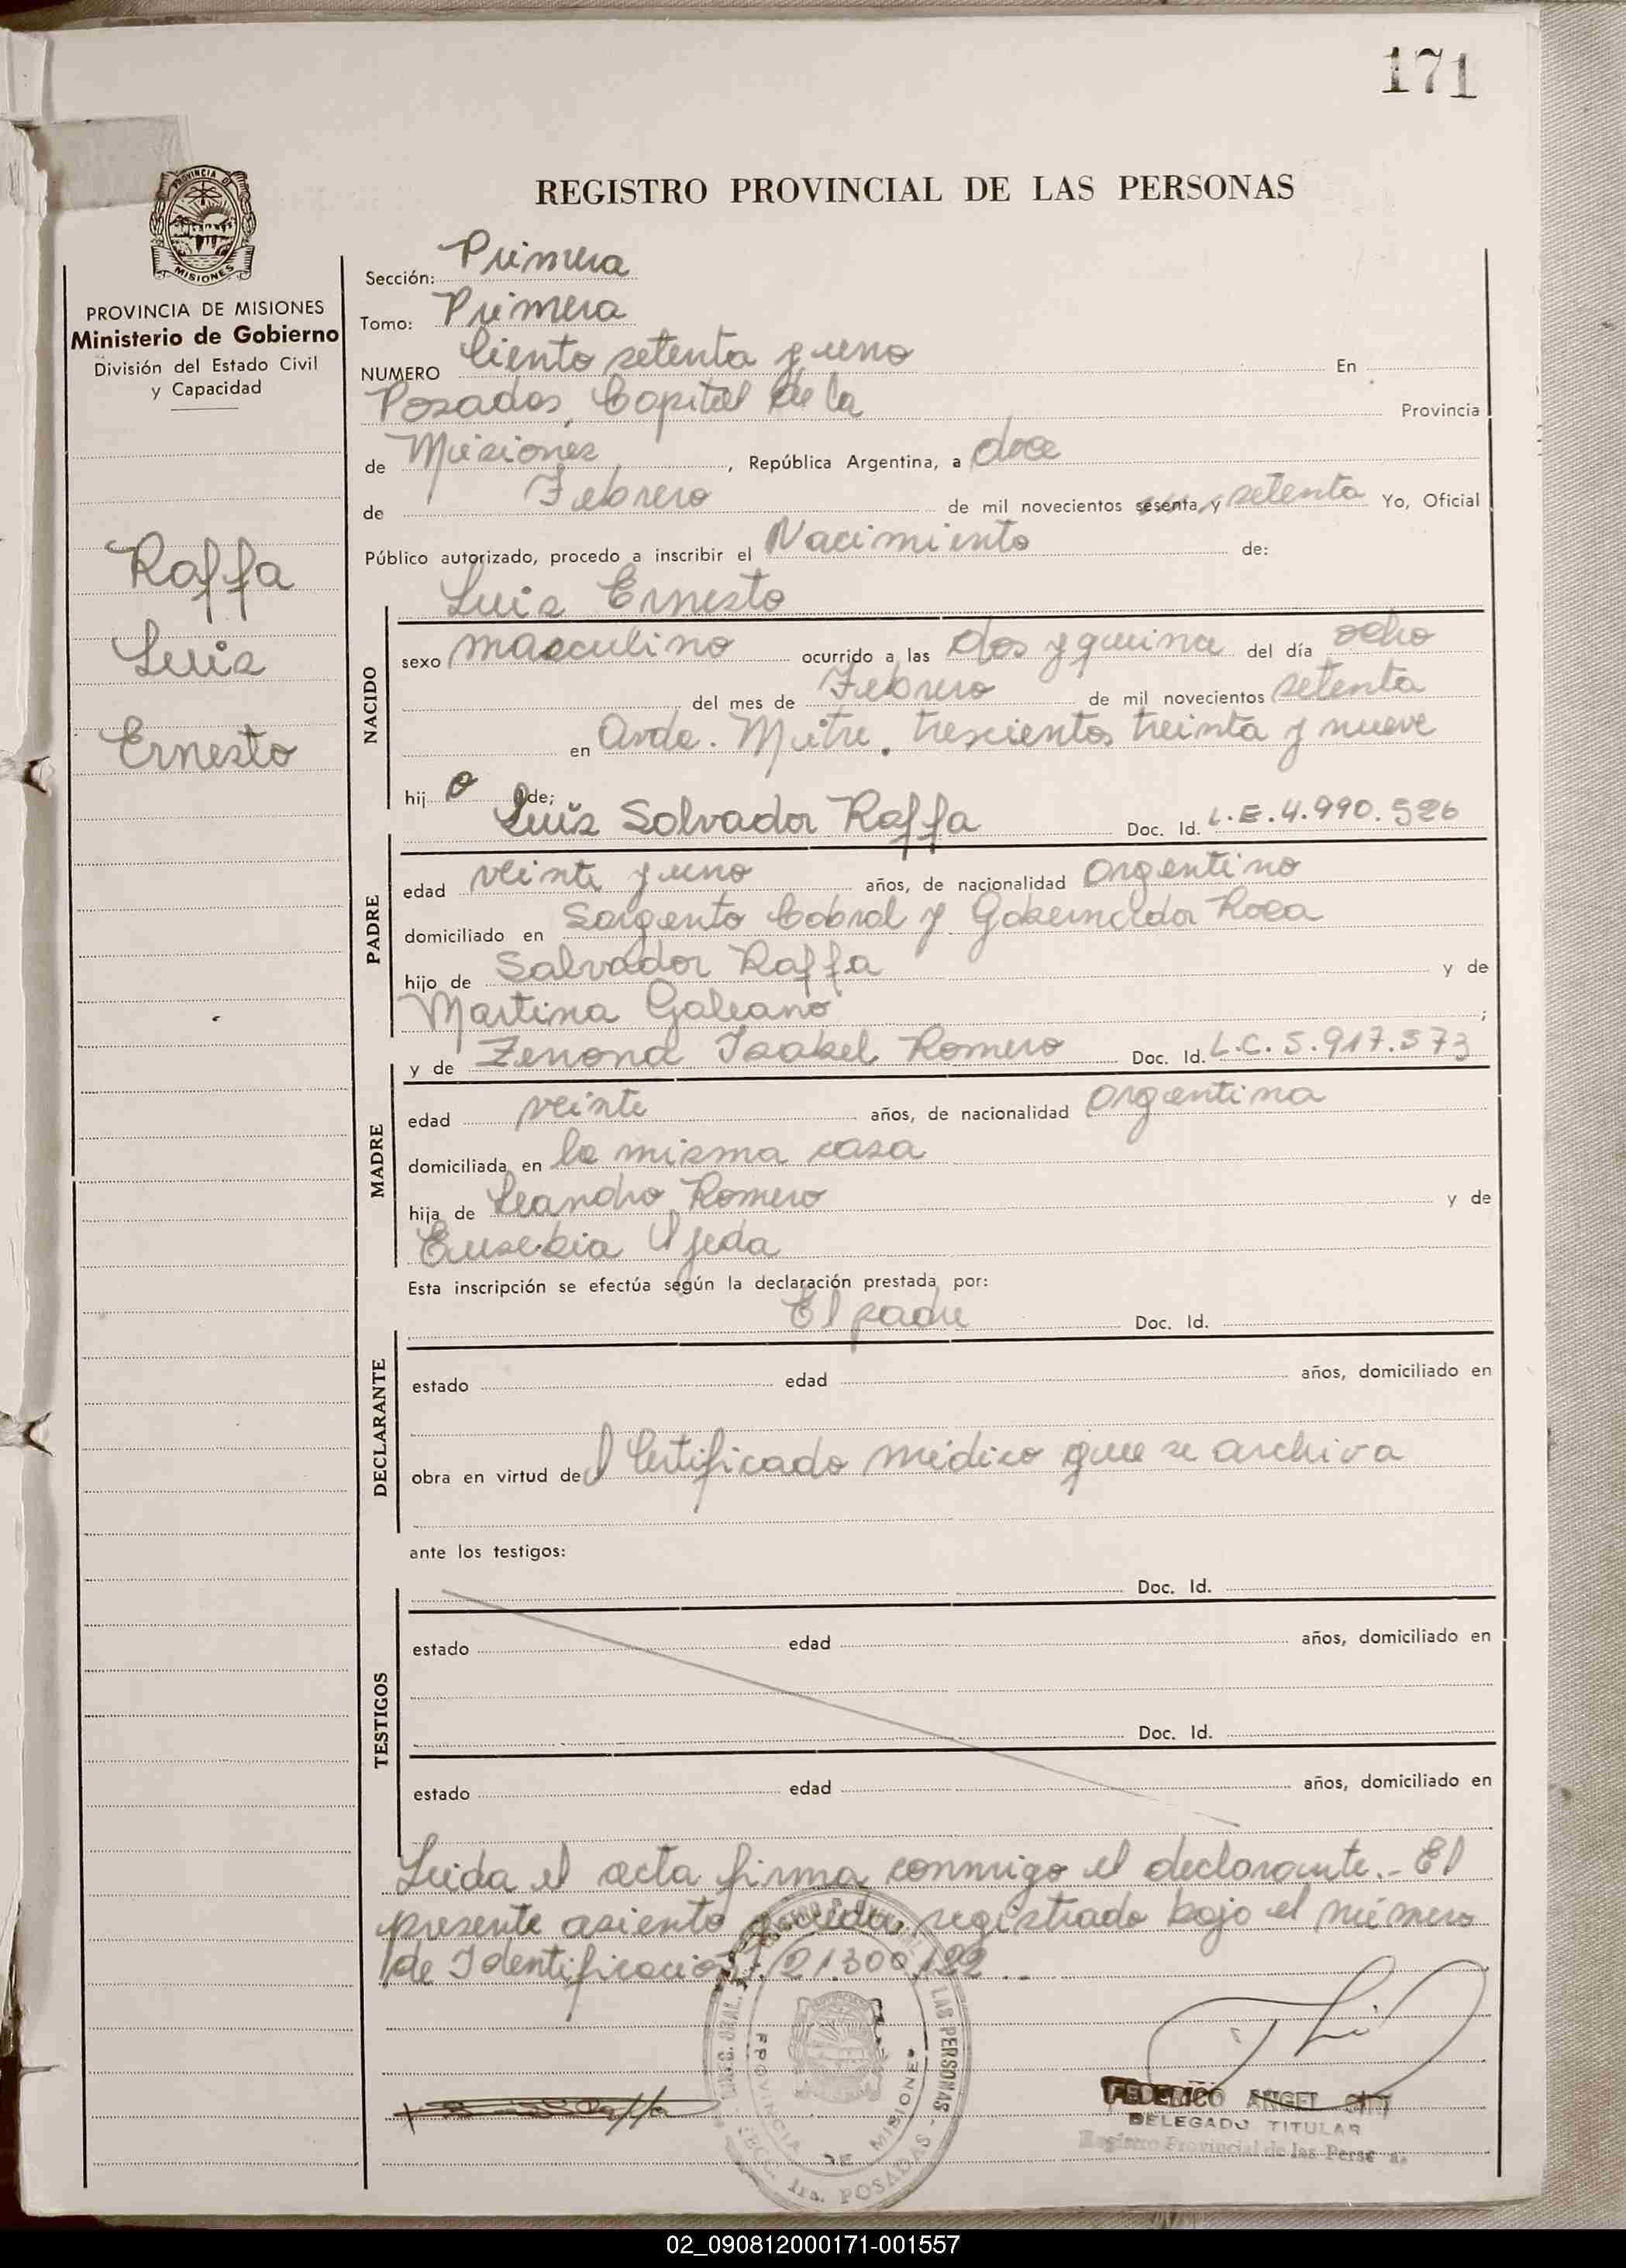 171
PROVINCIA DE MISIONES
PROVINCIA DE MISIONES
Ministerio de Gobierno
División del Estado Civil
y Capacidad
Raffa
Luis
Ernesto
REGISTRO PROVINCIAL DE LAS PERSONAS
Sección: Primera
Tomo: Primera
NUMERO Ciento setenta y uno En
Posadas, Capital de la Provincia
de Misiones, República Argentina, a doce
de Febrero de mil novecientos sesenta y setenta Yo, Oficial
Público autorizado, procedo a inscribir el Nacimiento de:
Luis Ernesto
NACIDO
sexo masculino ocurrido a las dos y quince del día ocho
del mes de Febrero de mil novecientos setenta
en Avda. Mitre. trescientos treinta y nueve
hij o de;
Luis Salvador Raffa Doc. Id. L.E. 4.990.526
PADRE
edad veinte y uno años, de nacionalidad Argentino
domiciliado en Sargento Cabral y Gobernador Roca
hijo de Salvador Raffa y de
Martina Galeano ;
y de Zenona Isabel Romero Doc. Id. L.C. 5.917.573
MADRE
edad veinte años, de nacionalidad Argentina
domiciliada en la misma casa
hija de Leandro Romero y de
Eusebia Ojeda
Esta inscripción se efectúa según la declaración prestada por:
El padre Doc. Id.
DECLARANTE
estado edad años, domiciliado en
obra en virtud del Certificado médico que se archiva
ante los testigos:
Doc. Id.
TESTIGOS
estado edad años, domiciliado en
Doc. Id.
estado edad años, domiciliado en
Leida el acta firma conmigo el declarante.- El
presente asiento queda registrado bajo el número
de Identificación: 21.300.122
LAS PERSONAS
PROVINCIA DE MISIONES
SECC. 1ra. POSADAS
FEDERICO ANGEL
DELEGADO TITULAR
Registro Provincial de las Pers
02_090812000171-001557